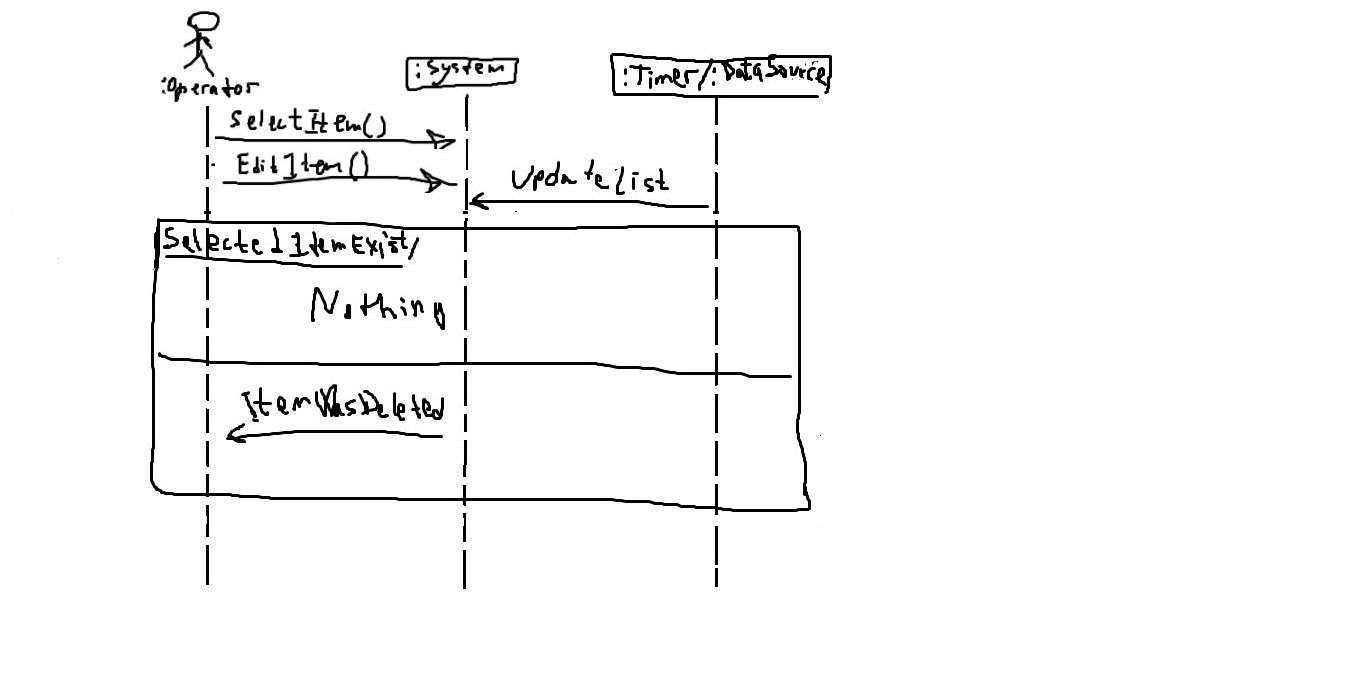 :Operator
:System
:Timer/:DataSource
SelectItem()
EditItem()
UpdateList
SelectedItemExist/
Nothing
ItemWasDeleted